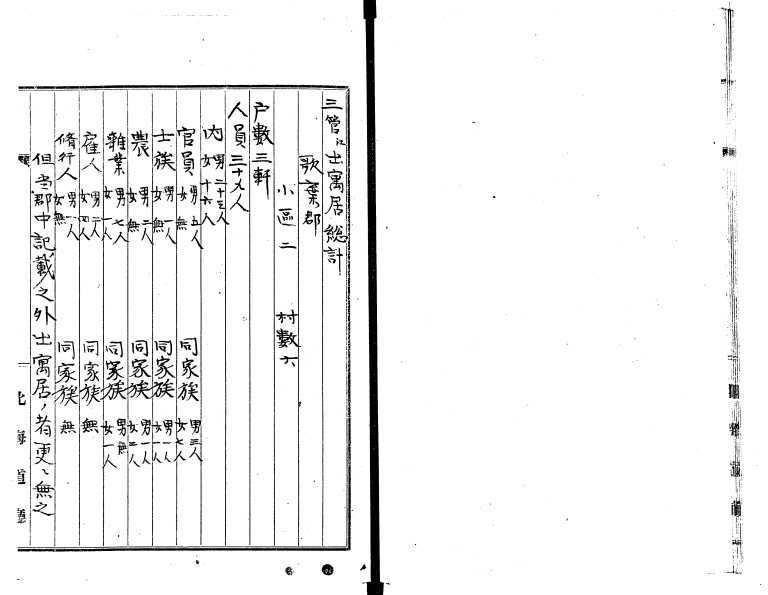 三管江出寓居総計
歌棄郡
小區二 村數六
戸數三軒
人員三十九人
内 男二十三人 女十六人
官員 男五人 女無 同家族 男三人 女七人
士族 男一人 女無 同家族 男一人 女一人
農 男二人 女無 同家族 男一人 女三人
雜業 男七人 女一人 同家族 男無 女一人
雇人 男二人 女四人 同家族 無
脩行人 男一人 女無 同家族 無
但当郡中記載之外出寓居ノ者更ニ無之
北海道廳